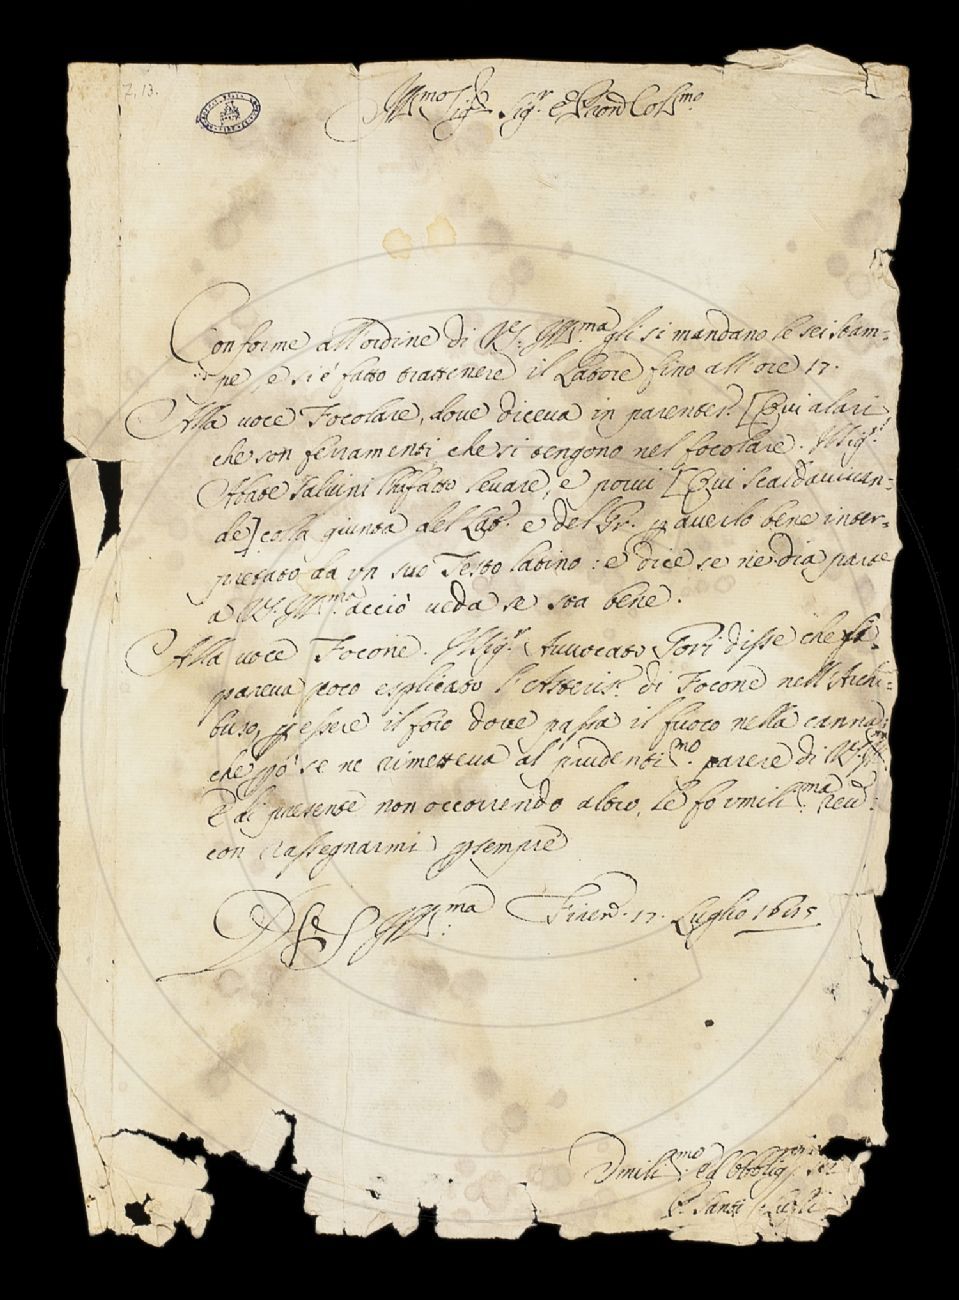 7.13.
Ill.mo Sig.r Sig.r e Pron Col.mo
Conforme all'ordine di V.S. Ill.ma gli si mandano le sei stam=
pe se si è fatto trattenere il Latore fino all'ore 17.
Alla voce Focolare, dove diceva in parentes. [Qui alari
che son ferramenti che si tengono nel focolare. Il Sig.r
Abate Salvini l'hà fatto levare, e porvi [Qui scaldavivan=
de] colla giunta del Lat. e del Gr. p averlo bene inter=
pretato da un suo Testo latino: e dice se ne dia parte
a V.S. Ill.ma acciò veda se sta bene.
Alla voce Focone. Il Sig.r Avvocato Fori disse che gli
pareva poco esplicato l'Asteris. di Focone nell'Archi=
buso, p essere il foro dove passa il fuoco nella canna:
che pò se ne rimetteva al prudenti.mo parere di V.S. Ill.
E al presente non occorrendo altro, le fo umili.ma reu:
con rassegnarmi p sempre
D V.S. Ill.ma Firen. 17. Luglio
Umili.mo ed Obblig. Ser